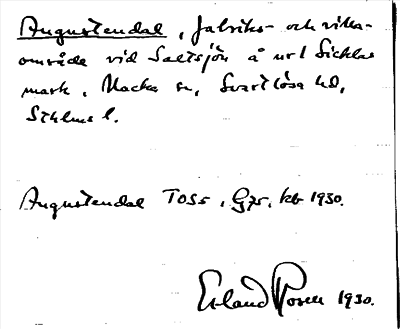 Augustendal, fabriks- och villa-
område vid Saltsjön å urspr Sicklas
mark, Nacka sn, Svartlösa hd,
Sthlms l.
Augustendal TOSs, G75, kb 1930.
Erland Rosell 1930.